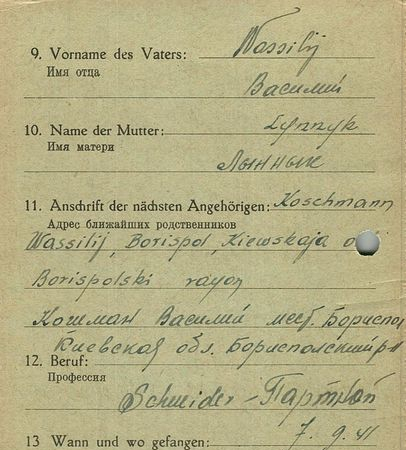 9. Vorname des Vaters: Wassilij
Имя отца
Василий
10. Name der Mutter:
Имя матери
11. Anschrift der nächsten Angehörigen: Koschmann
Адрес ближайших родственников
Wassilij, Borispol, Kiewskaja
Borispolski rayon
Кошман Василий мест. Бориспол
Киевская обл. Бориспольский р-н
12. Beruf:
Профессия
Schneider - Портной
13 Wann und wo gefangen: 7. 9. 41